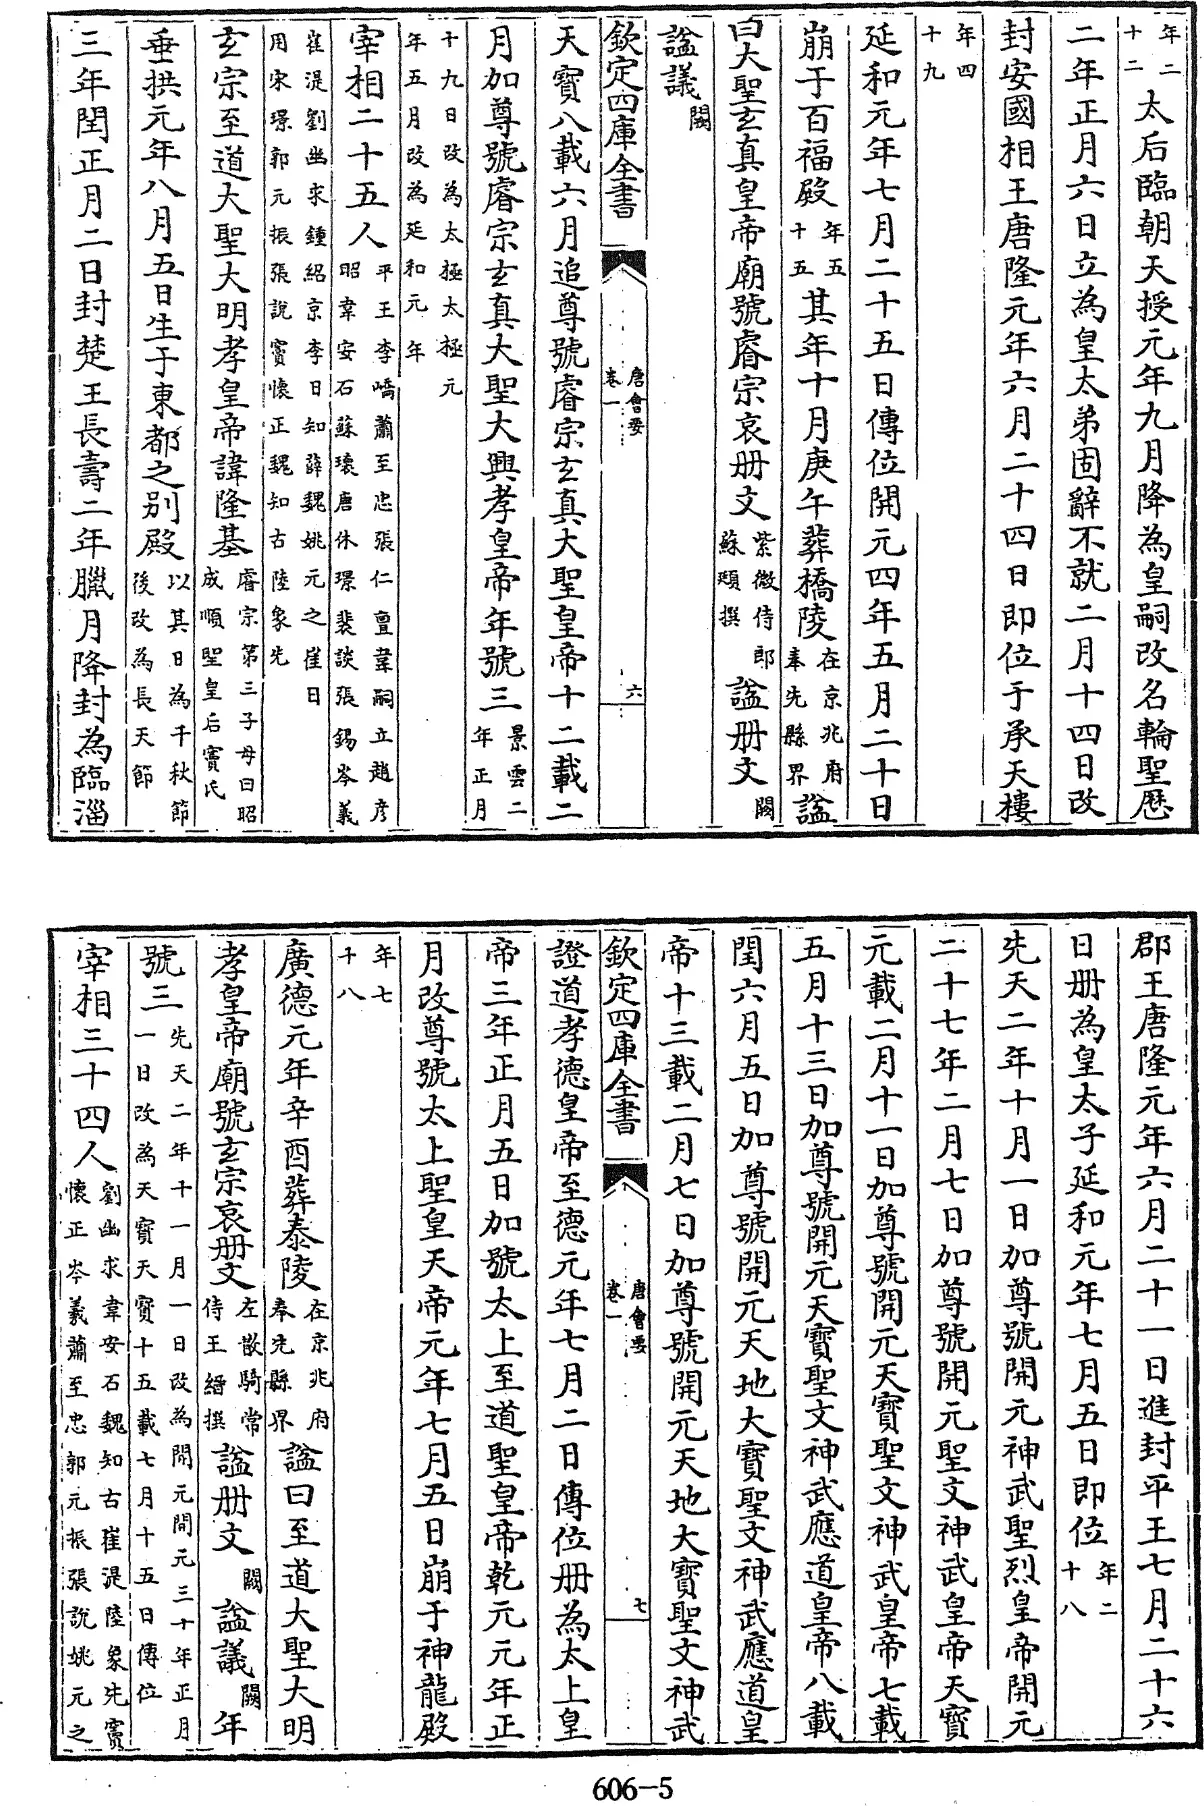 年二十二太后臨朝天授元年九月降為皇嗣改名輪聖厯
二年正月六日立為皇太弟固辭不就二月十四日改
封安國相王唐隆元年六月二十四日即位于承天樓
年四十九
延和元年七月二十五日傳位開元四年五月二十日
崩于百福殿年五十五其年十月庚午葬橋陵在京兆府奉先縣界諡
曰大聖玄真皇帝廟號睿宗哀册文紫微侍郎蘇頲撰諡册文闕
諡議闕
欽定四庫全書 唐會要卷一 六
天寶八載六月追尊號睿宗玄真大聖皇帝十二載二
月加尊號睿宗玄真大聖大興孝皇帝年號三景雲二年正月
十九日改為太極太極元年五月改為延和元年
宰相二十五人平王李嶠蕭至忠張仁亶韋嗣立趙彦昭韋安石蘇瓌唐休璟裴談張錫岑羲
崔湜劉幽求鍾紹京李日知薛魏姚元之崔日用宋璟郭元振張說竇懷正魏知古陸象先
玄宗至道大聖大明孝皇帝諱隆基睿宗第三子母曰昭成順聖皇后竇氏
垂拱元年八月五日生于東都之别殿以其日為千秋節後改為長天節
三年閏正月二日封楚王長壽二年臘月降封為臨淄
郡王唐隆元年六月二十一日進封平王七月二十六
日册為皇太子延和元年七月五日即位年二十八
先天二年十月一日加尊號開元神武聖烈皇帝開元
二十七年二月七日加尊號開元聖文神武皇帝天寶
元載二月十一日加尊號開元天寶聖文神武皇帝七載
五月十三日加尊號開元天寶聖文神武應道皇帝八載
閏六月五日加尊號開元天地大寶聖文神武應道皇
帝十三載二月七日加尊號開元天地大寶聖文神武
欽定四庫全書 唐會要卷一 七
證道孝德皇帝至德元年七月二日傳位册為太上皇
帝三年正月五日加號太上至道聖皇帝乾元元年正
月改尊號太上聖皇天帝元年七月五日崩于神龍殿
年七十八
廣德元年辛酉葬泰陵在京兆府奉先縣界諡曰至道大聖大明
孝皇帝廟號玄宗哀册文左散騎常侍王縉撰諡册文闕諡議闕年
號三先天二年十一月一日改為開元開元三十年正月一日改為天寶天寶十五載七月十五日傳位
宰相三十四人劉幽求韋安石魏知古崔湜陸象先竇懷正岑羲蕭至忠郭元振張說姚元之
606-5